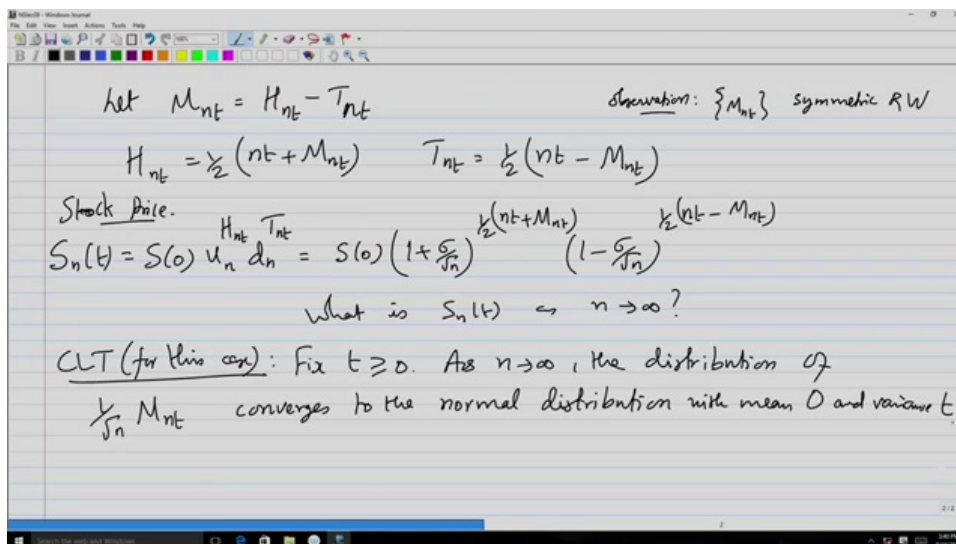 NSlec09 - Windows Journal
File Edit View Insert Actions Tools Help
Let M_{nt} = H_{nt} - T_{nt}
observation: {M_{nt}} symmetric RW
H_{nt} = ½ (nt + M_{nt}) T_{nt} = ½ (nt - M_{nt})
Stock price.
S_n(t) = S(0) u_n^{H_{nt}} d_n^{T_{nt}} = S(0) (1 + σ/√n)^{½(nt + M_{nt})} (1 - σ/√n)^{½(nt - M_{nt})}
What is S_n(t) as n → ∞ ?
CLT (for this case) : Fix t ≥ 0. As n → ∞, the distribution of
1/√n M_{nt} converges to the normal distribution with mean 0 and variance t.
2/2
2
Search the web and Windows